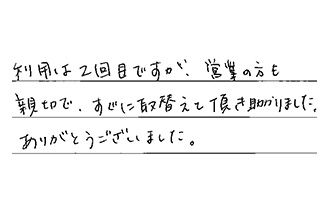 利用は2回目ですが、営業の方も
親切で、すぐに取替えて頂き助かりました。
ありがとうございました。